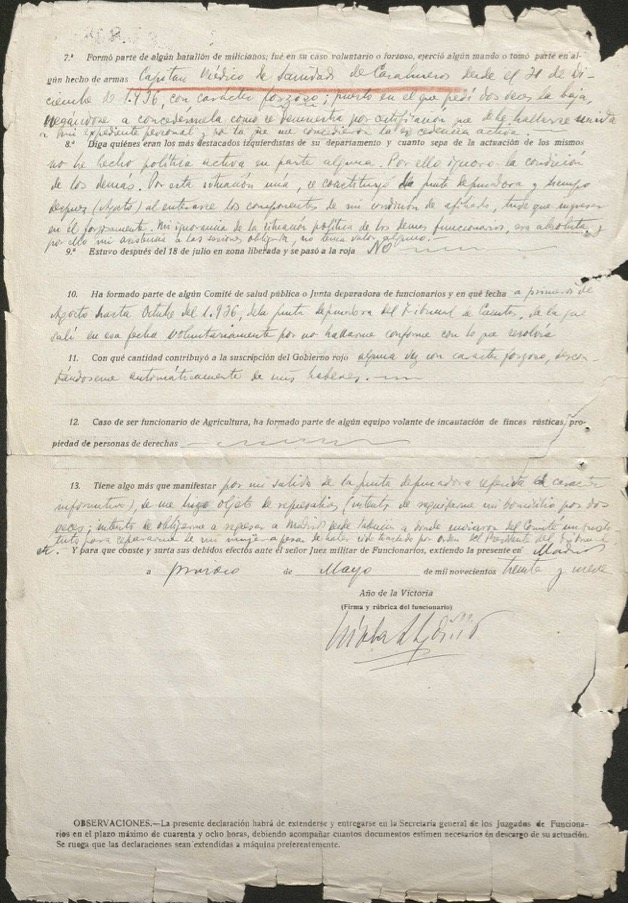 7.ª Formó parte de algún batallón de milicianos; fué en su caso voluntario o forzoso, ejerció algún mando o tomó parte en al-
gún hecho de armas Capitan Médico de Sanidad de Carabineros desde el 31 de Di-
ciembre de 1.936, con carácter forzoso; puesto en el que pedí dos veces la baja,
negándose a concedermela como se demuestra por certificación que debe hallarse unida
a mi expediente personal y no la que me concedieron la excedencia activa.
8.ª Diga quiénes eran los más destacados izquierdistas de su departamento y cuanto sepa de la actuación de los mismos
no he hecho política activa en parte alguna. Por ello ignoro la condición
de los demás. Por esta situación mía, se constituyó la junta depuradora y tiempo
despues (Agosto) al enterarse los componentes de mi condición de afiliado, tuve que ingresar
en el forzosamente. Mi ignorancia de la situación política de los demás funcionarios, era absoluta, y
por ello mi asistencia a las sesiones obligada, no tenia valor alguno.
9.ª Estuvo después del 18 de julio en zona liberada y se pasó a la roja NO
10. Ha formado parte de algún Comité de salud pública o Junta depuradora de funcionarios y en qué fecha a primeros de
Agosto hasta Octubre del 1.936, de la junta depuradora del Tribunal de Cuentas, de la que
salí en esa fecha voluntariamente por no hallarme conforme con lo que resolvía
11. Con qué cantidad contribuyó a la suscripción del Gobierno rojo alguna vez con carácter forzoso, descon-
tándoseme automáticamente de mis haberes.
12. Caso de ser funcionario de Agricultura, ha formado parte de algún equipo volante de incautación de fincas rústicas, pro-
piedad de personas de derechas
13. Tiene algo más que manifestar por mi salida de la junta depuradora referida de carácter
informativo, se me hizo objeto de represalias (intento de requisarme mi domicilio por dos
veces; intento de obligarme a regresar a Madrid desde a donde enviaron del Comité un
para separarme de mi mujer a pesar de haber sido por orden del Presidente del Tribunal
etc. Y para que conste y surta sus debidos efectos ante el señor Juez militar de Funcionarios, extiendo la presente en Madrid
a primero de Mayo de mil novecientos treinta y nueve
Año de la Victoria
(Firma y rúbrica del funcionario)
OBSERVACIONES.—La presente declaración habrá de extenderse y entregarse en la Secretaría general de los Juzgados de Funciona-
rios en el plazo máximo de cuarenta y ocho horas, debiendo acompañar cuantos documentos estimen necesarios en descargo de su actuación.
Se ruega que las declaraciones sean extendidas a máquina preferentemente.